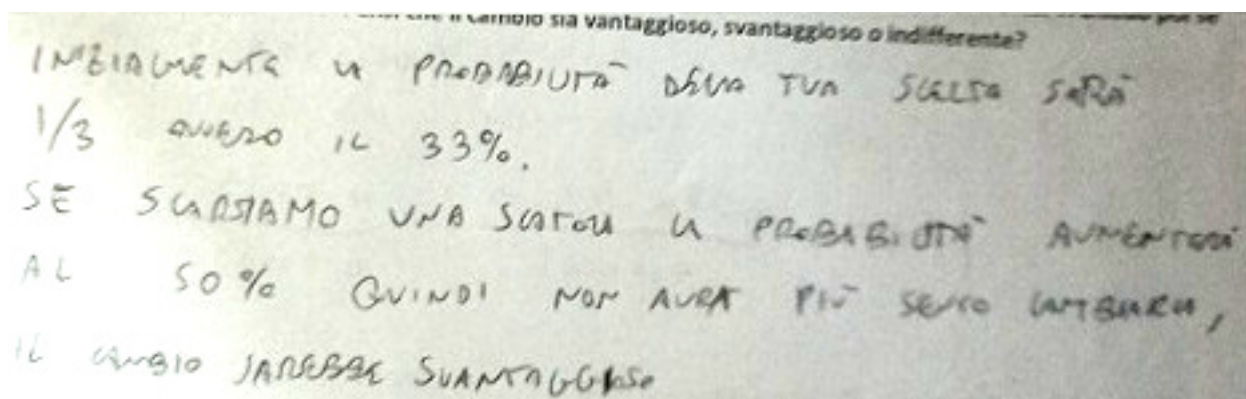 che il cambio sia vantaggioso, svantaggioso o indifferente?
INIZIALMENTE LA PROBABILITÀ DELLA TUA SCELTA SARÀ
1/3 OVVERO IL 33%.
SE SCARTIAMO UNA SCATOLA LA PROBABILITÀ AUMENTERÀ
AL 50% QUINDI NON AVRÀ PIÙ SENSO CAMBIARLA,
IL CAMBIO SAREBBE SVANTAGGIOSO